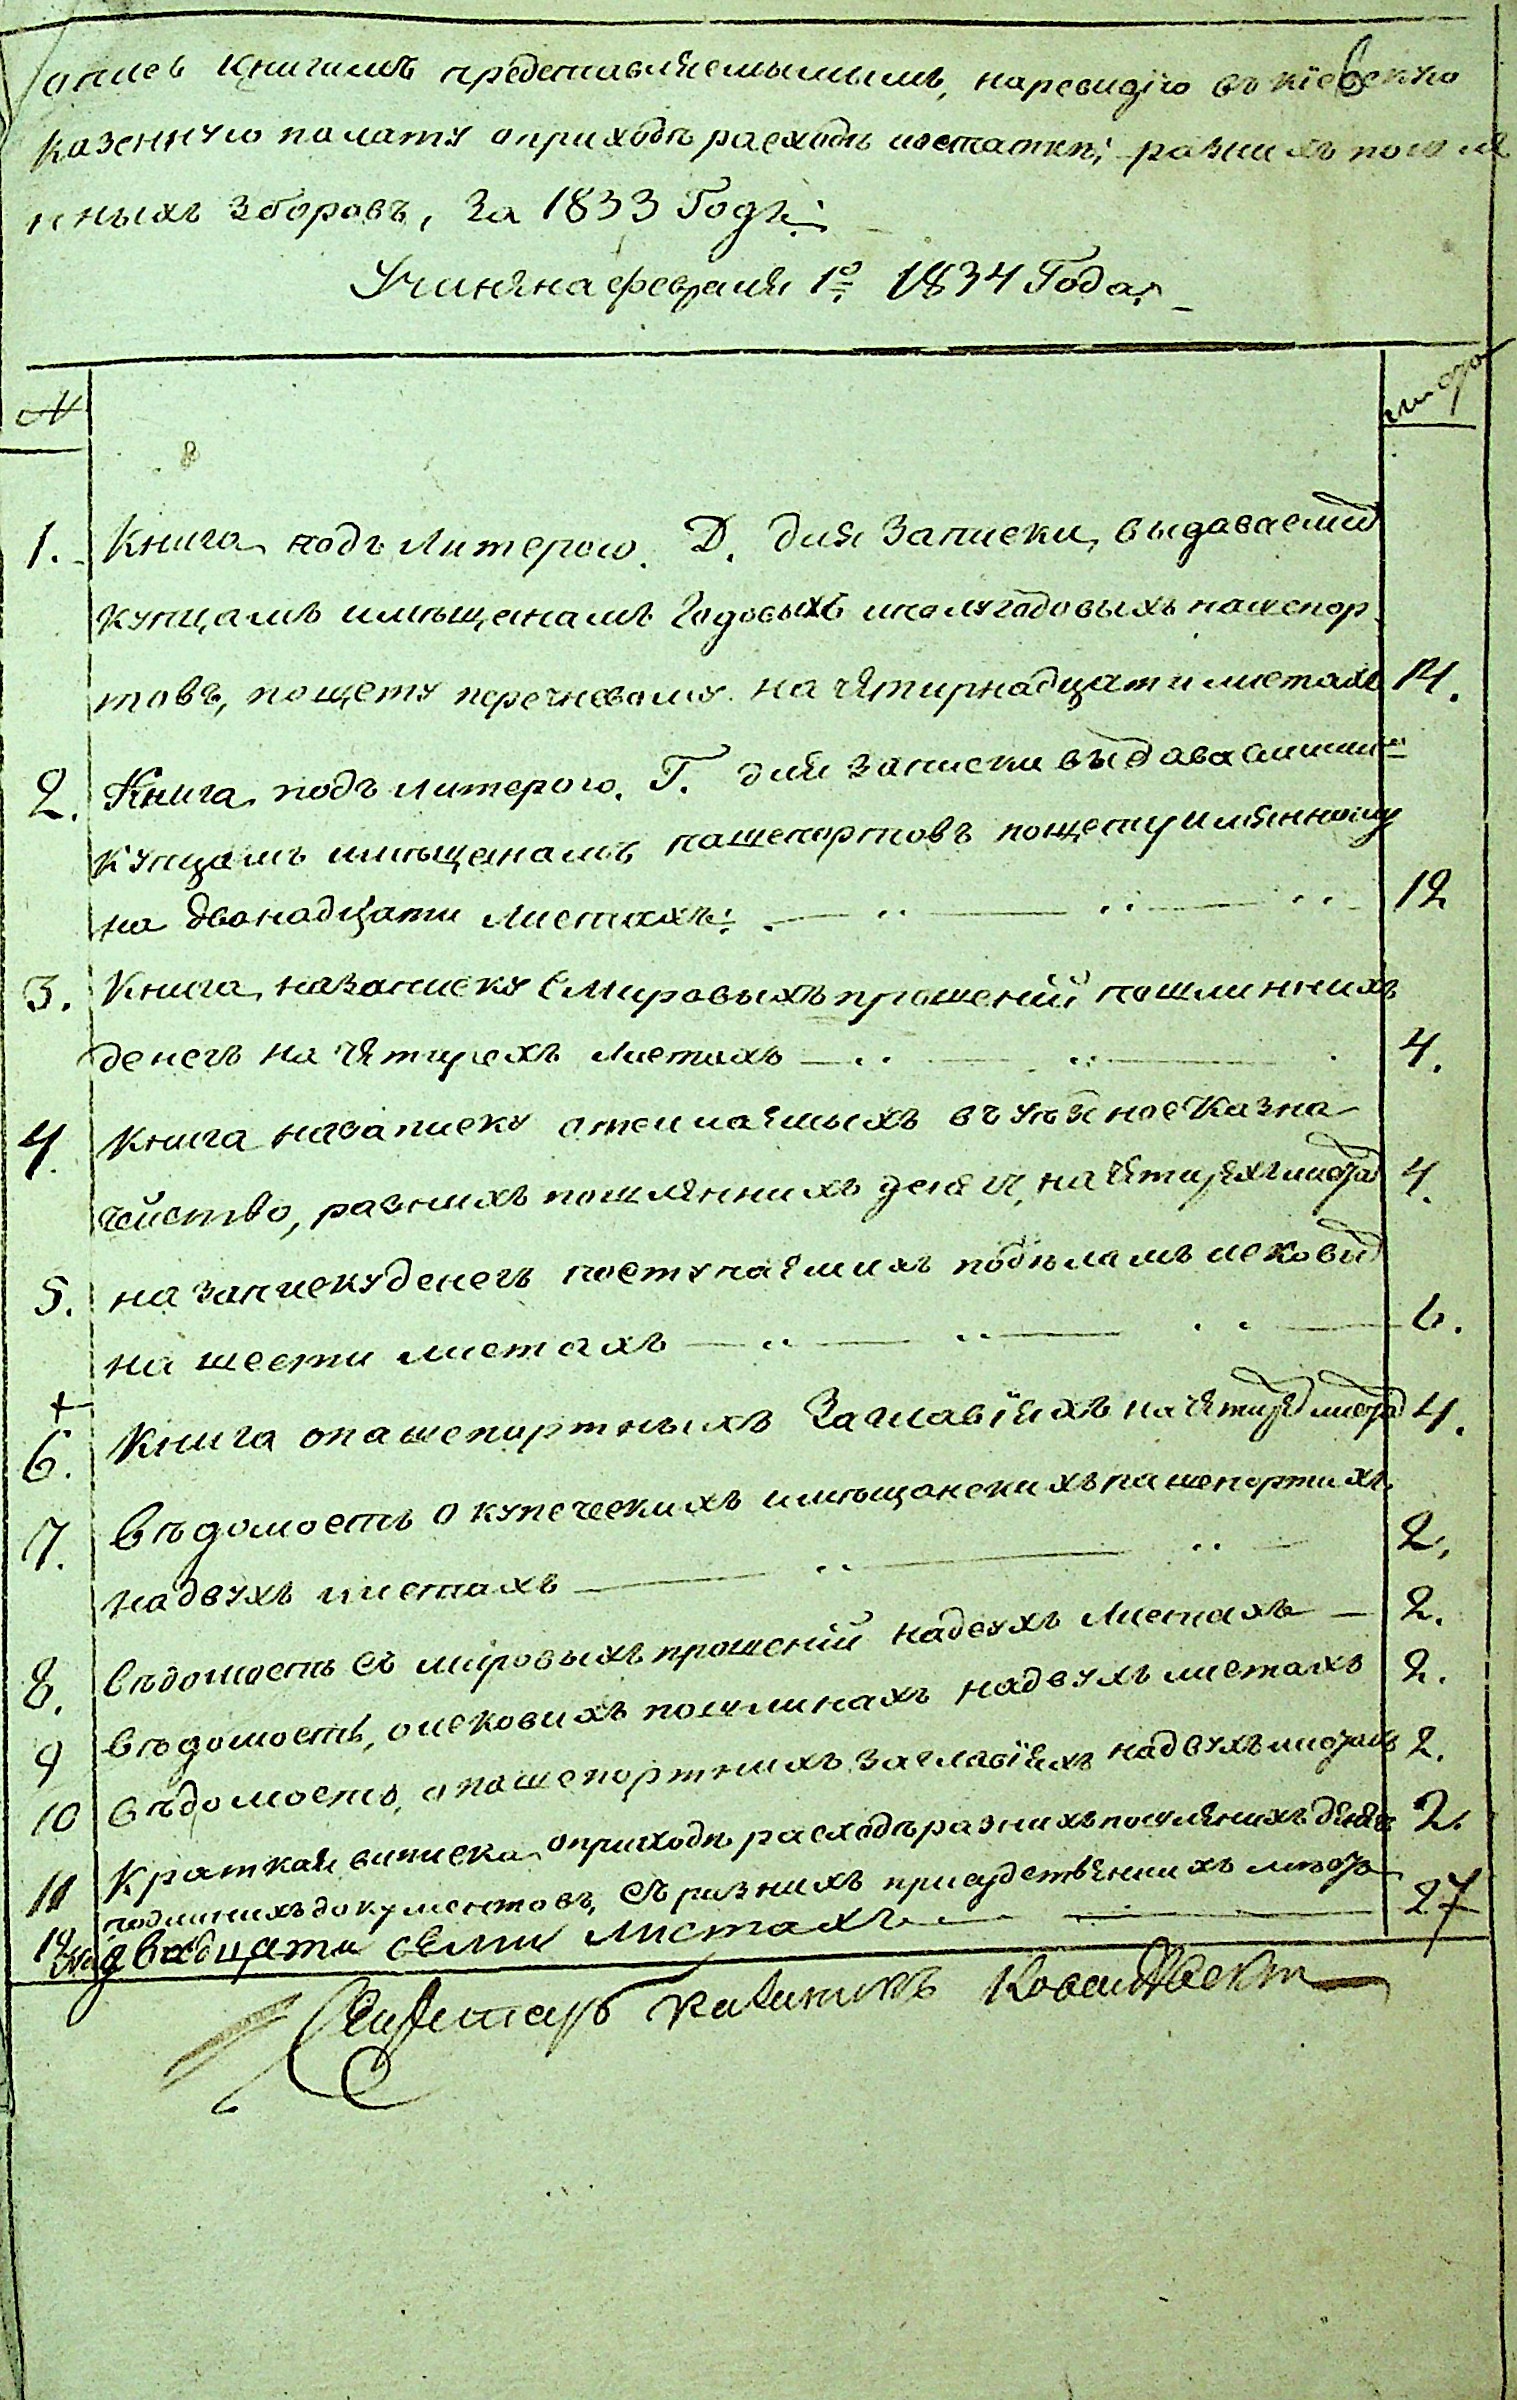 опись книгамъ предсставляемымымъ, наревизію въ кіевскую
казенную палату оприходѣ расходѣ иостаткѣ, разнихъ пошля
нныхъ зборовъ, За 1833 Годъ:
Учинѣна февраля 1го 1834 Года,
№
листо
1. Книга подъ Литерою. Д. для Записки, выдаваемих
купцамъ имѣщанамъ Годовыхъ иполугодовыхъ пашпор
товъ, пощету перечневому на чѣтирнадцати листахъ 14.
2. Книга подъ литерою. Г. для записки выдаваемим
купцамъ имѣщанамъ пашепортовъ пощету имѣнному
на двонадцати Листахъ: 12
3. Книга, назаписку Смировыхъ прошеній пошлиннихъ
денегъ на чѣтирехъ Листахъ 4.
4. Книга назаписку отсилаѣмыхъ въ уѣздное Казна
чейство, разнихъ пошлѣннихъ денѣгъ, на чѣтирѣхъ листахъ 4.
5. на записку денегъ поступаѣмихъ подѣламъ исковых
на шести листахъ 6.
6. Книга опашепортныхъ Заглавіяхъ на чѣтирѣх листах 4.
7. Вѣдомость о купеческихъ имѣщанскихъ пашепортахъ
надвухъ листахъ 2,
8. Вѣдомость съ мировыхъ прошеній надвухъ Листахъ 2.
9 Вѣдомость, оисковихъ пошлинахъ надвухъ листахъ 2.
10 Вѣдомость, опашепортнихъ заглавіяхъ надвухъ листахъ 2.
11 Краткая виписка оприходѣ расходѣ разнихъ пошлѣнихъ дѣнѣгъ 2.
12 подлинихъ документовъ, съ разнихъ присудствѣнихъ мѣстъ
на двадцати сѣми листахъ 27
Секретарь